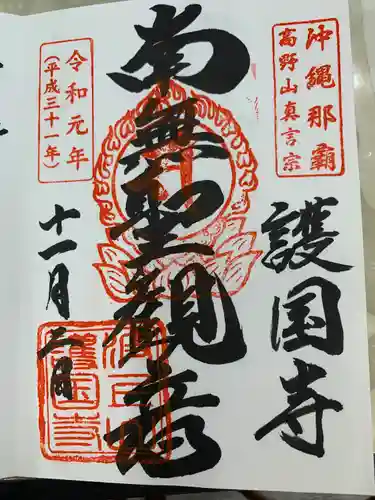 沖縄那覇
高野山真言宗
護国寺
南無聖観音
令和元年
(平成三十一年)
十一月三日